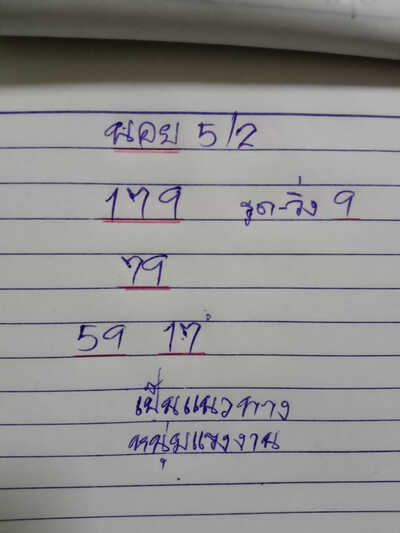 นอย 5/2
179 รูด-วิ่ง 9
79
59 17
เป็นแนวทาง
หนุ่มแรงงาน